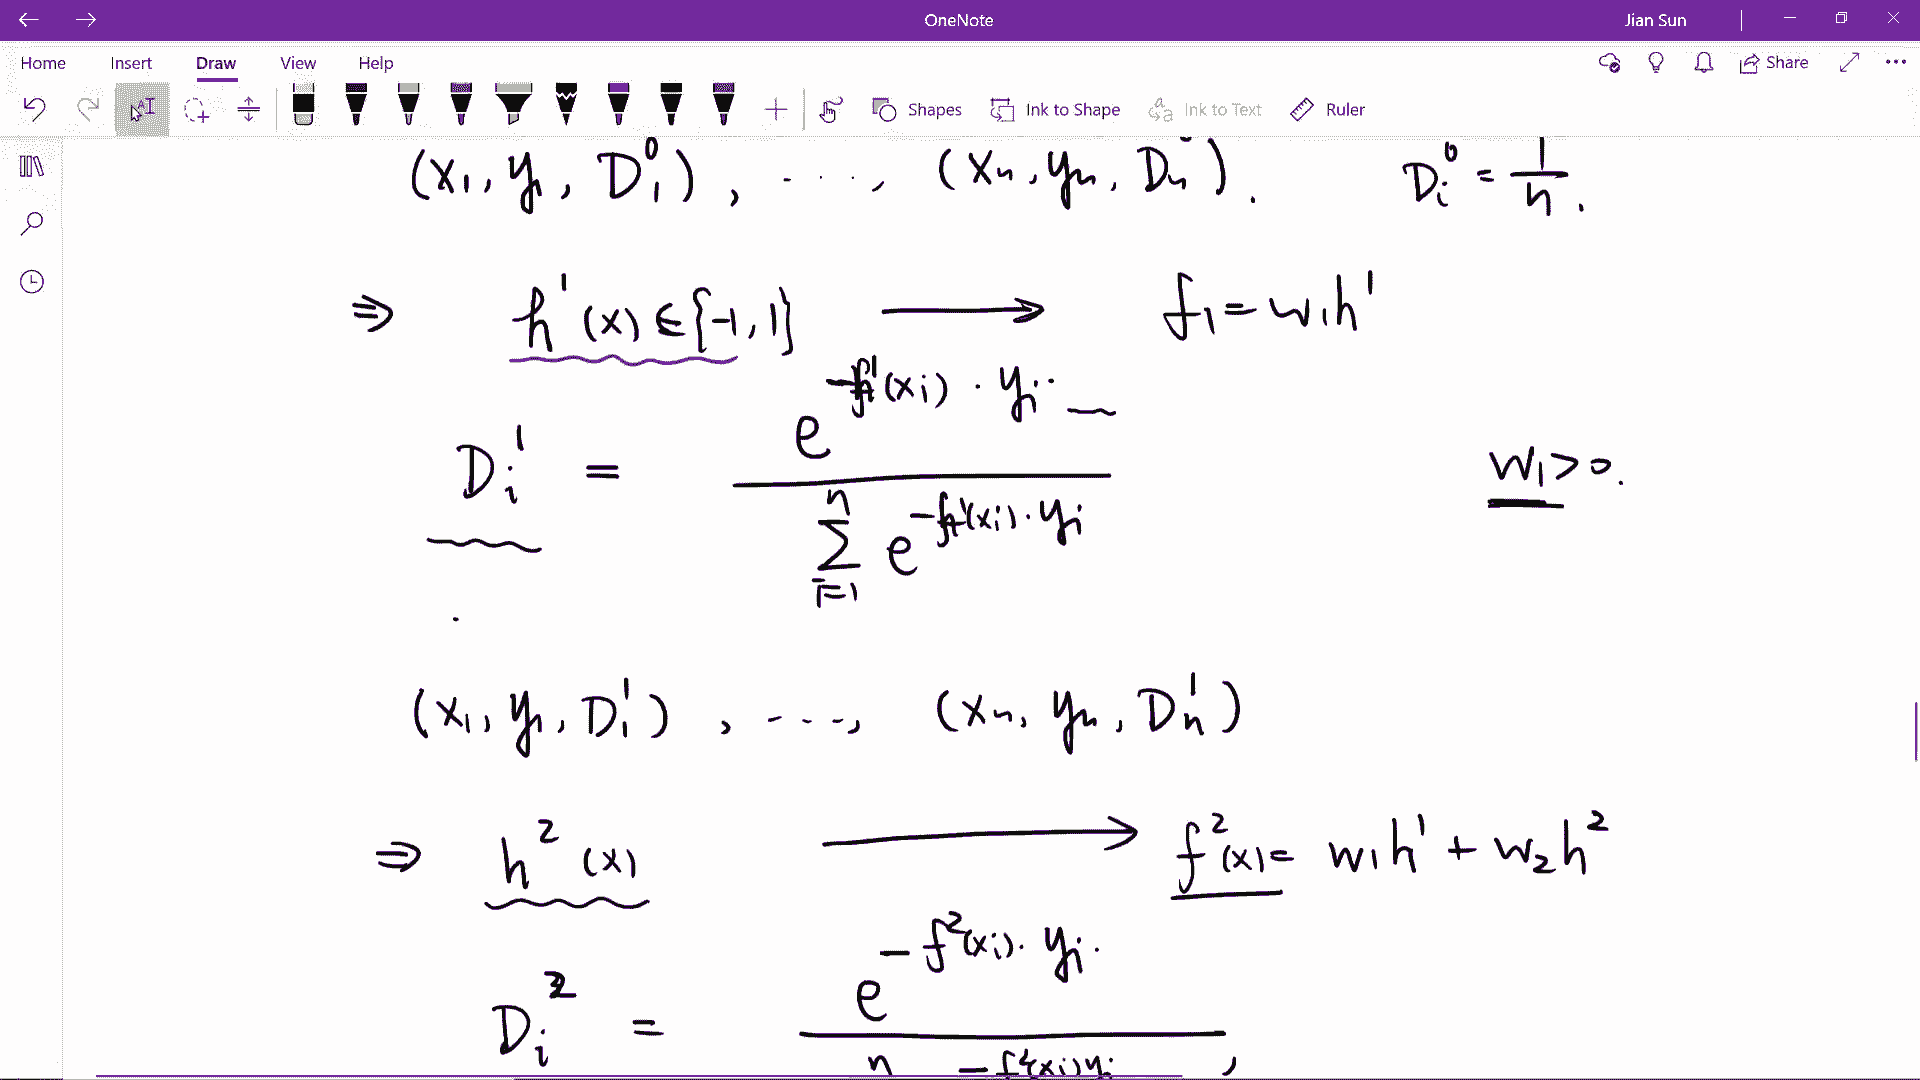 OneNote
Jian Sun
Home Insert Draw View Help Share
Shapes Ink to Shape Ink to Text Ruler
(x₁, y₁, D₁⁰), ...., (xₙ, yₙ, Dₙ⁰). Dᵢ⁰ = 1/n.
⇒ h¹(x) ∈ {-1, 1} → f₁ = w₁h¹
Dᵢ¹ = e^(-f¹(xᵢ)·yᵢ) / Σᵢ₌₁ⁿ e^(-f¹(xᵢ)·yᵢ) w₁>0.
(x₁, y₁, D₁¹), ----, (xₙ, yₙ, Dₙ¹)
⇒ h²(x) → f²(x) = w₁h¹ + w₂h²
Dᵢ² = e^(-f²(xᵢ)·yᵢ) / n -f²(xᵢ)yᵢ ,